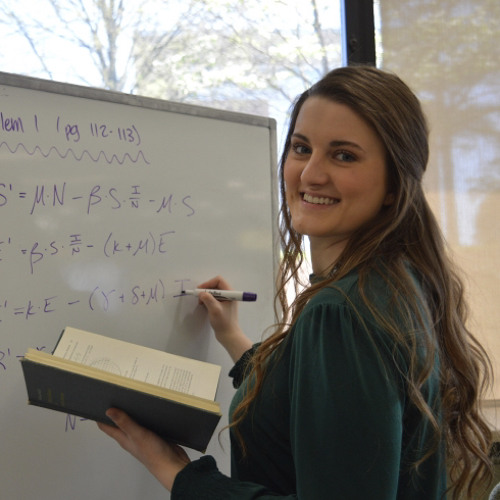 lem 1 (pg 112-113)
S' = μ·N - β·S·I/N - μ·S
E' = β·S·I/N - (k+μ)E
I' = k·E - (γ+δ+μ)I
R'
N